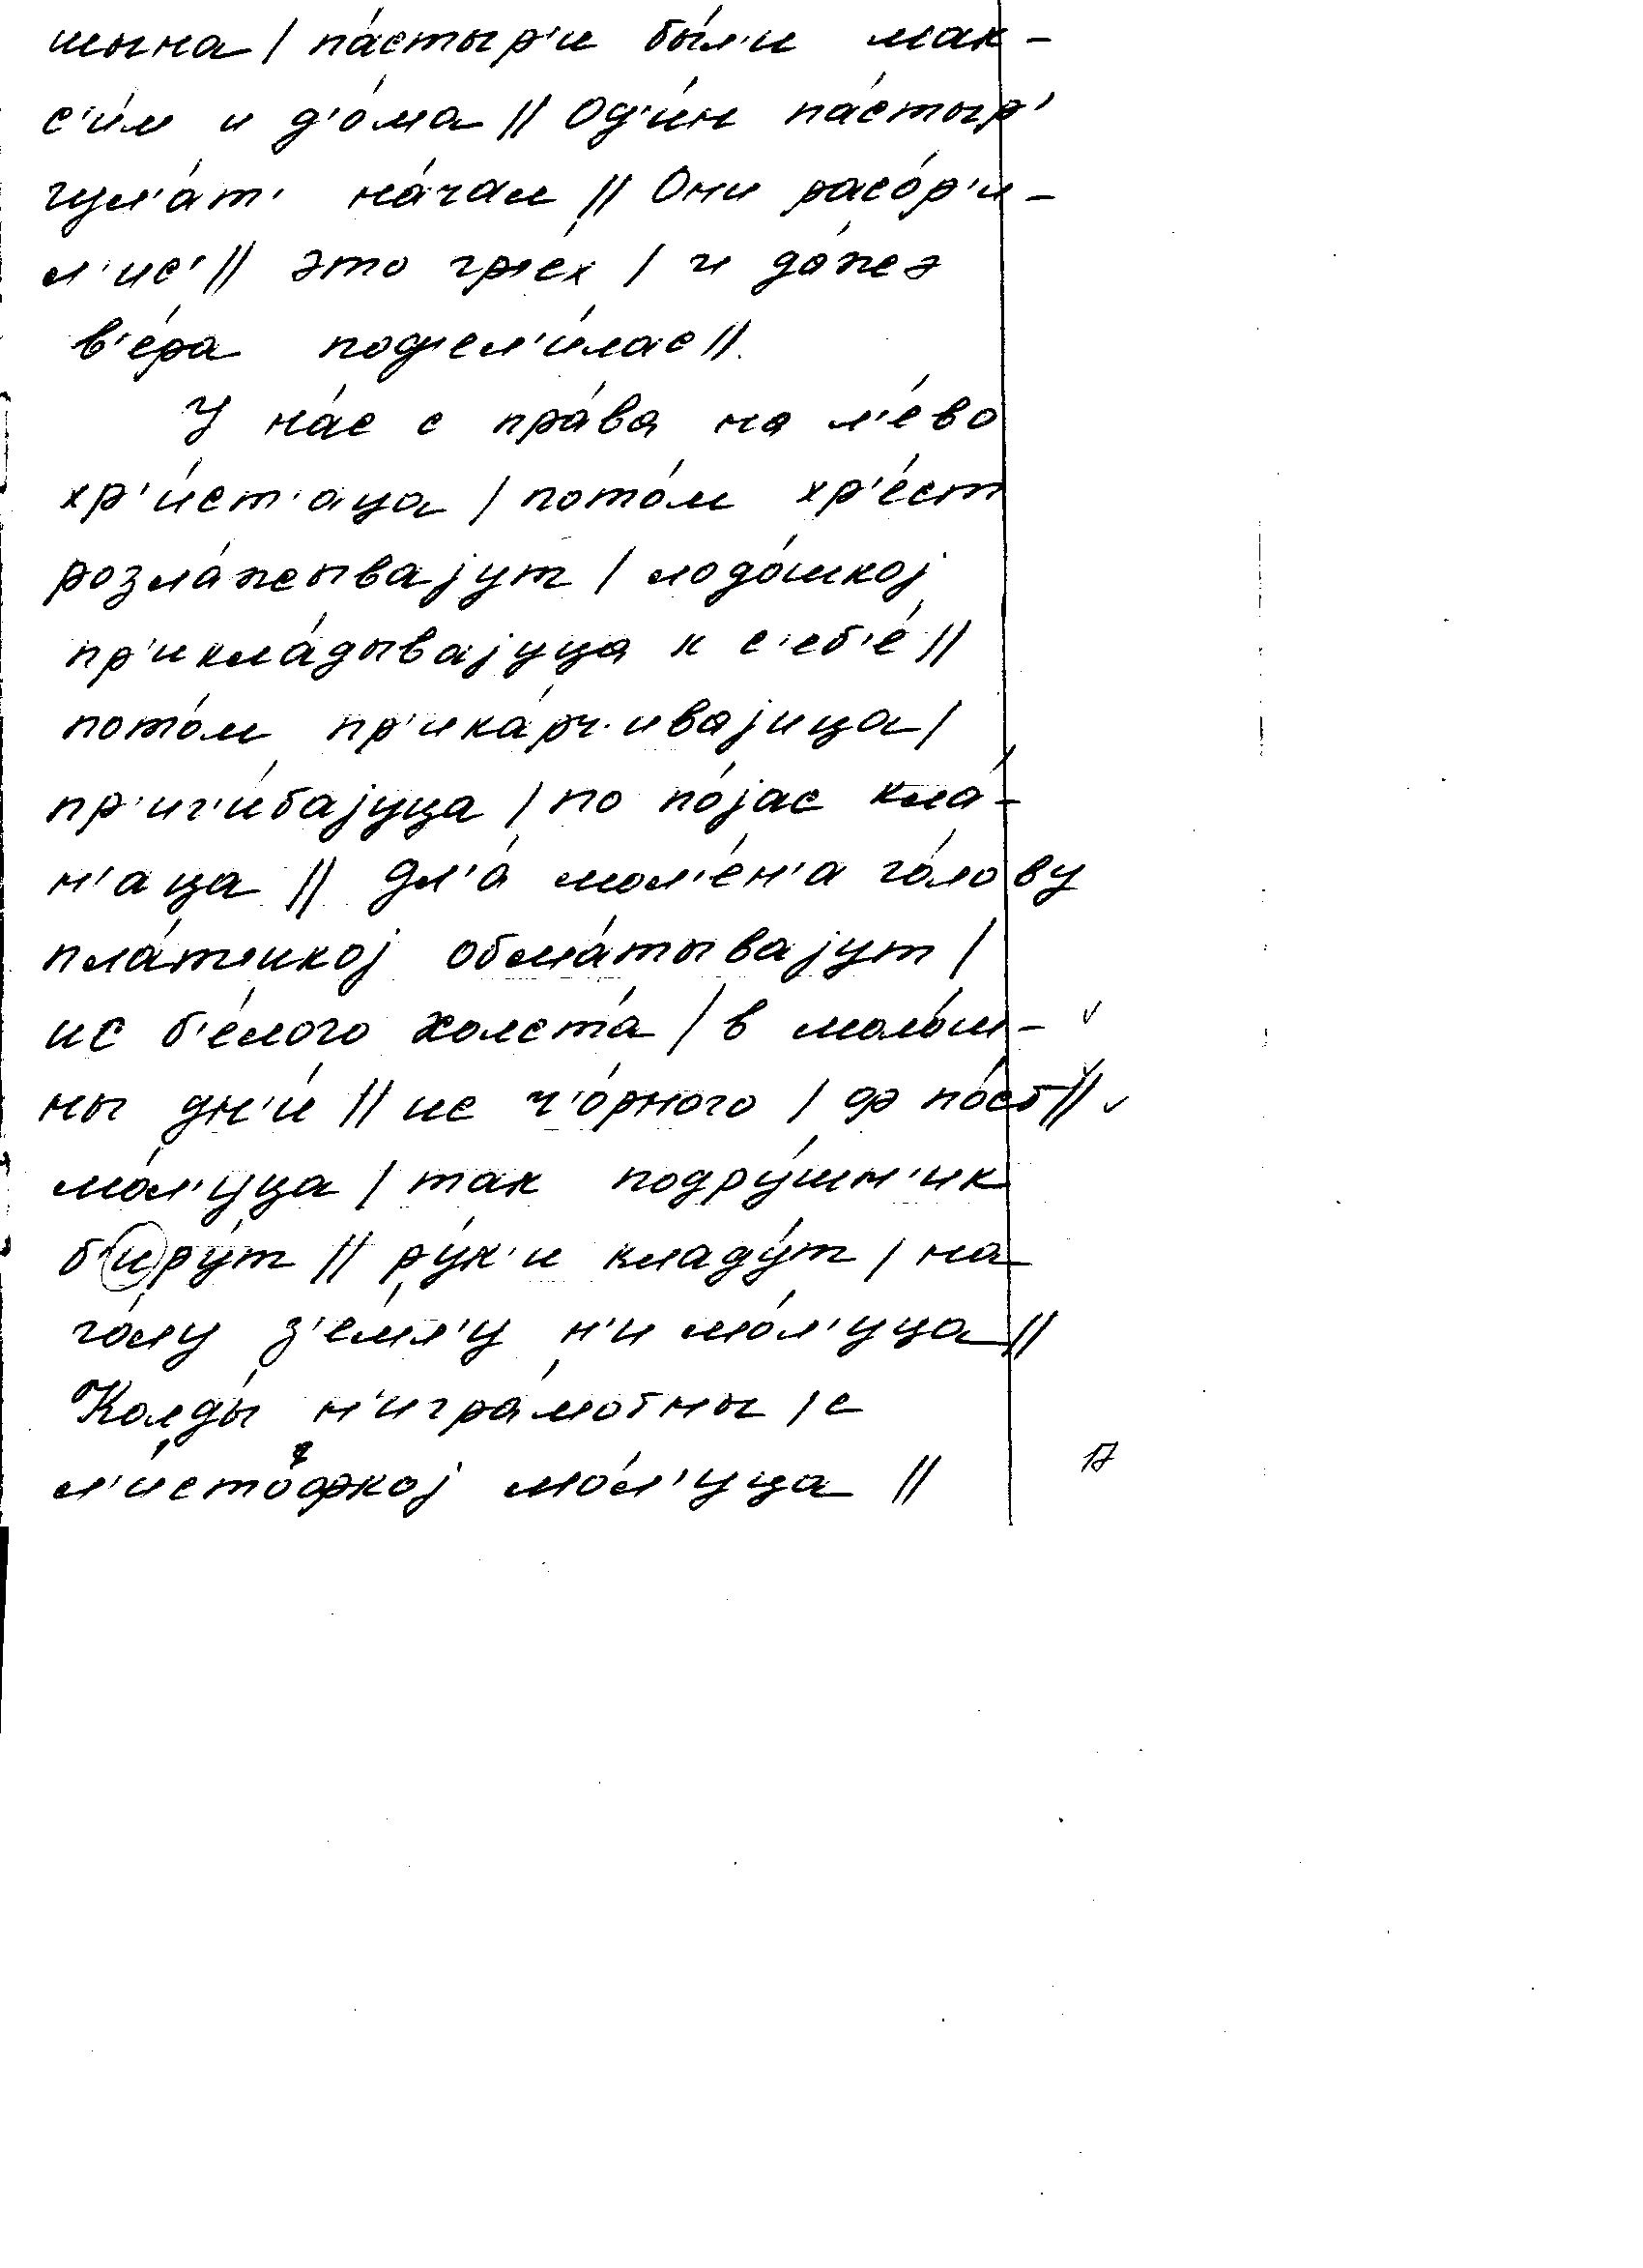 шына / па́стыр'и бы́л'и мак-
с'и́м и д'о́ма // Од'и́н па́стыр'
гул'а́т' на́чал // Они расо́р'и-
л'ис' // это гр'е́х / и да́жэ
в'е́ра под'ел'и́лас //
У на́с с пра́ва на л'е́во
хр'и́ст'аца / пото́м хр'е́ст
розла́жывајут / лодо́шкој
пр'икла́дывајуца к с'еб'е́ //
пото́м пр'ика́рч'ивајица /
пр'иг'и́бајуца / по по́јас кла́-
н'аца // дл'а́ мол'е́н'а го́лову
пла́т'икој обма́тывајут /
ис б'е́лого холста́ / в моло́ш-
ны дн'и́ // ис ч'о́рного / ф по́ст //
мо́л'уца / так подру́шн'ик
б'иру́т // ру́к'и кладу́т / на
го́лу з'е́мл'у н'и мо́л'уца //
Колды́ н'игра́мотны / с
л'и́стофкој мо́л'уца // 17